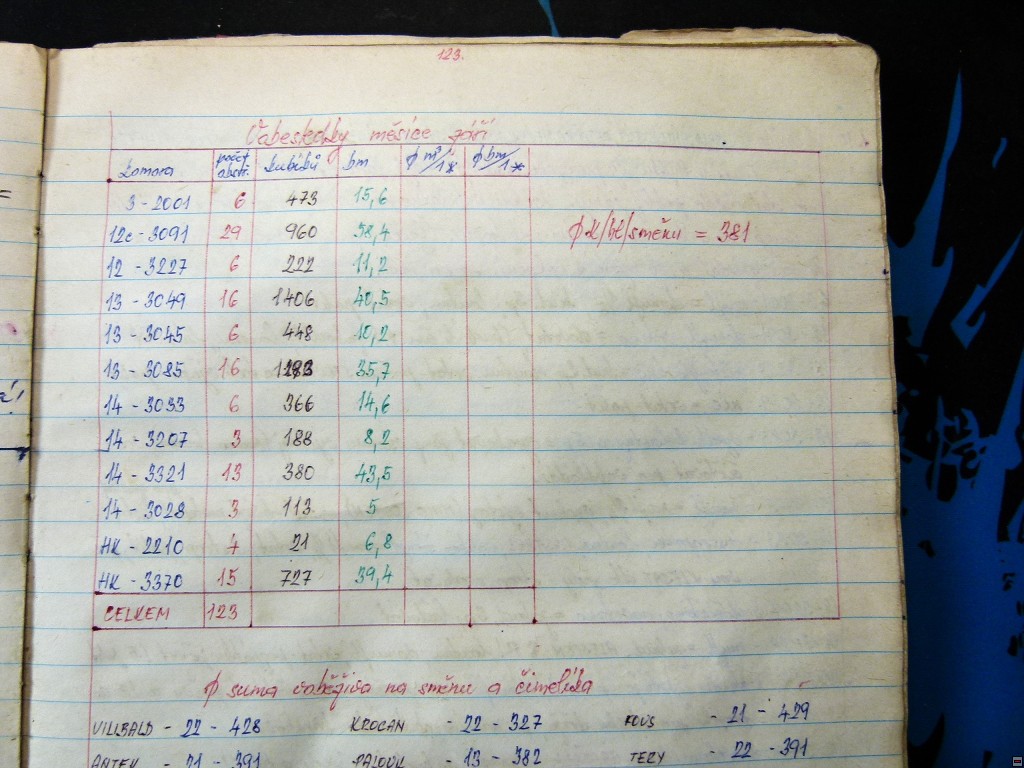 123.
měsíce září
komora počet kubíků bm ϕ m³/1* ϕ bm/1*
3-2001 6 473 15,6
12c-3091 29 960 58,4 /směnu = 381
12-3227 6 222 11,2
13-3049 16 1406 40,5
13-3045 6 448 10,2
13-3085 16 35,7
14-3033 6 366 14,6
14-3207 3 188 8,2
14-3321 13 380 43,5
14-3028 3 113 5
HK-2210 4 21 6,8
HK-3370 15 727 39,4
CELKEM 123
ϕ suma na směnu a
VILIBALD - 22 - 428 KROCAN - 22 - 327 - 21 - 429
ANTEK - 21 - 391 - 13 - 382 TERY - 22 - 391